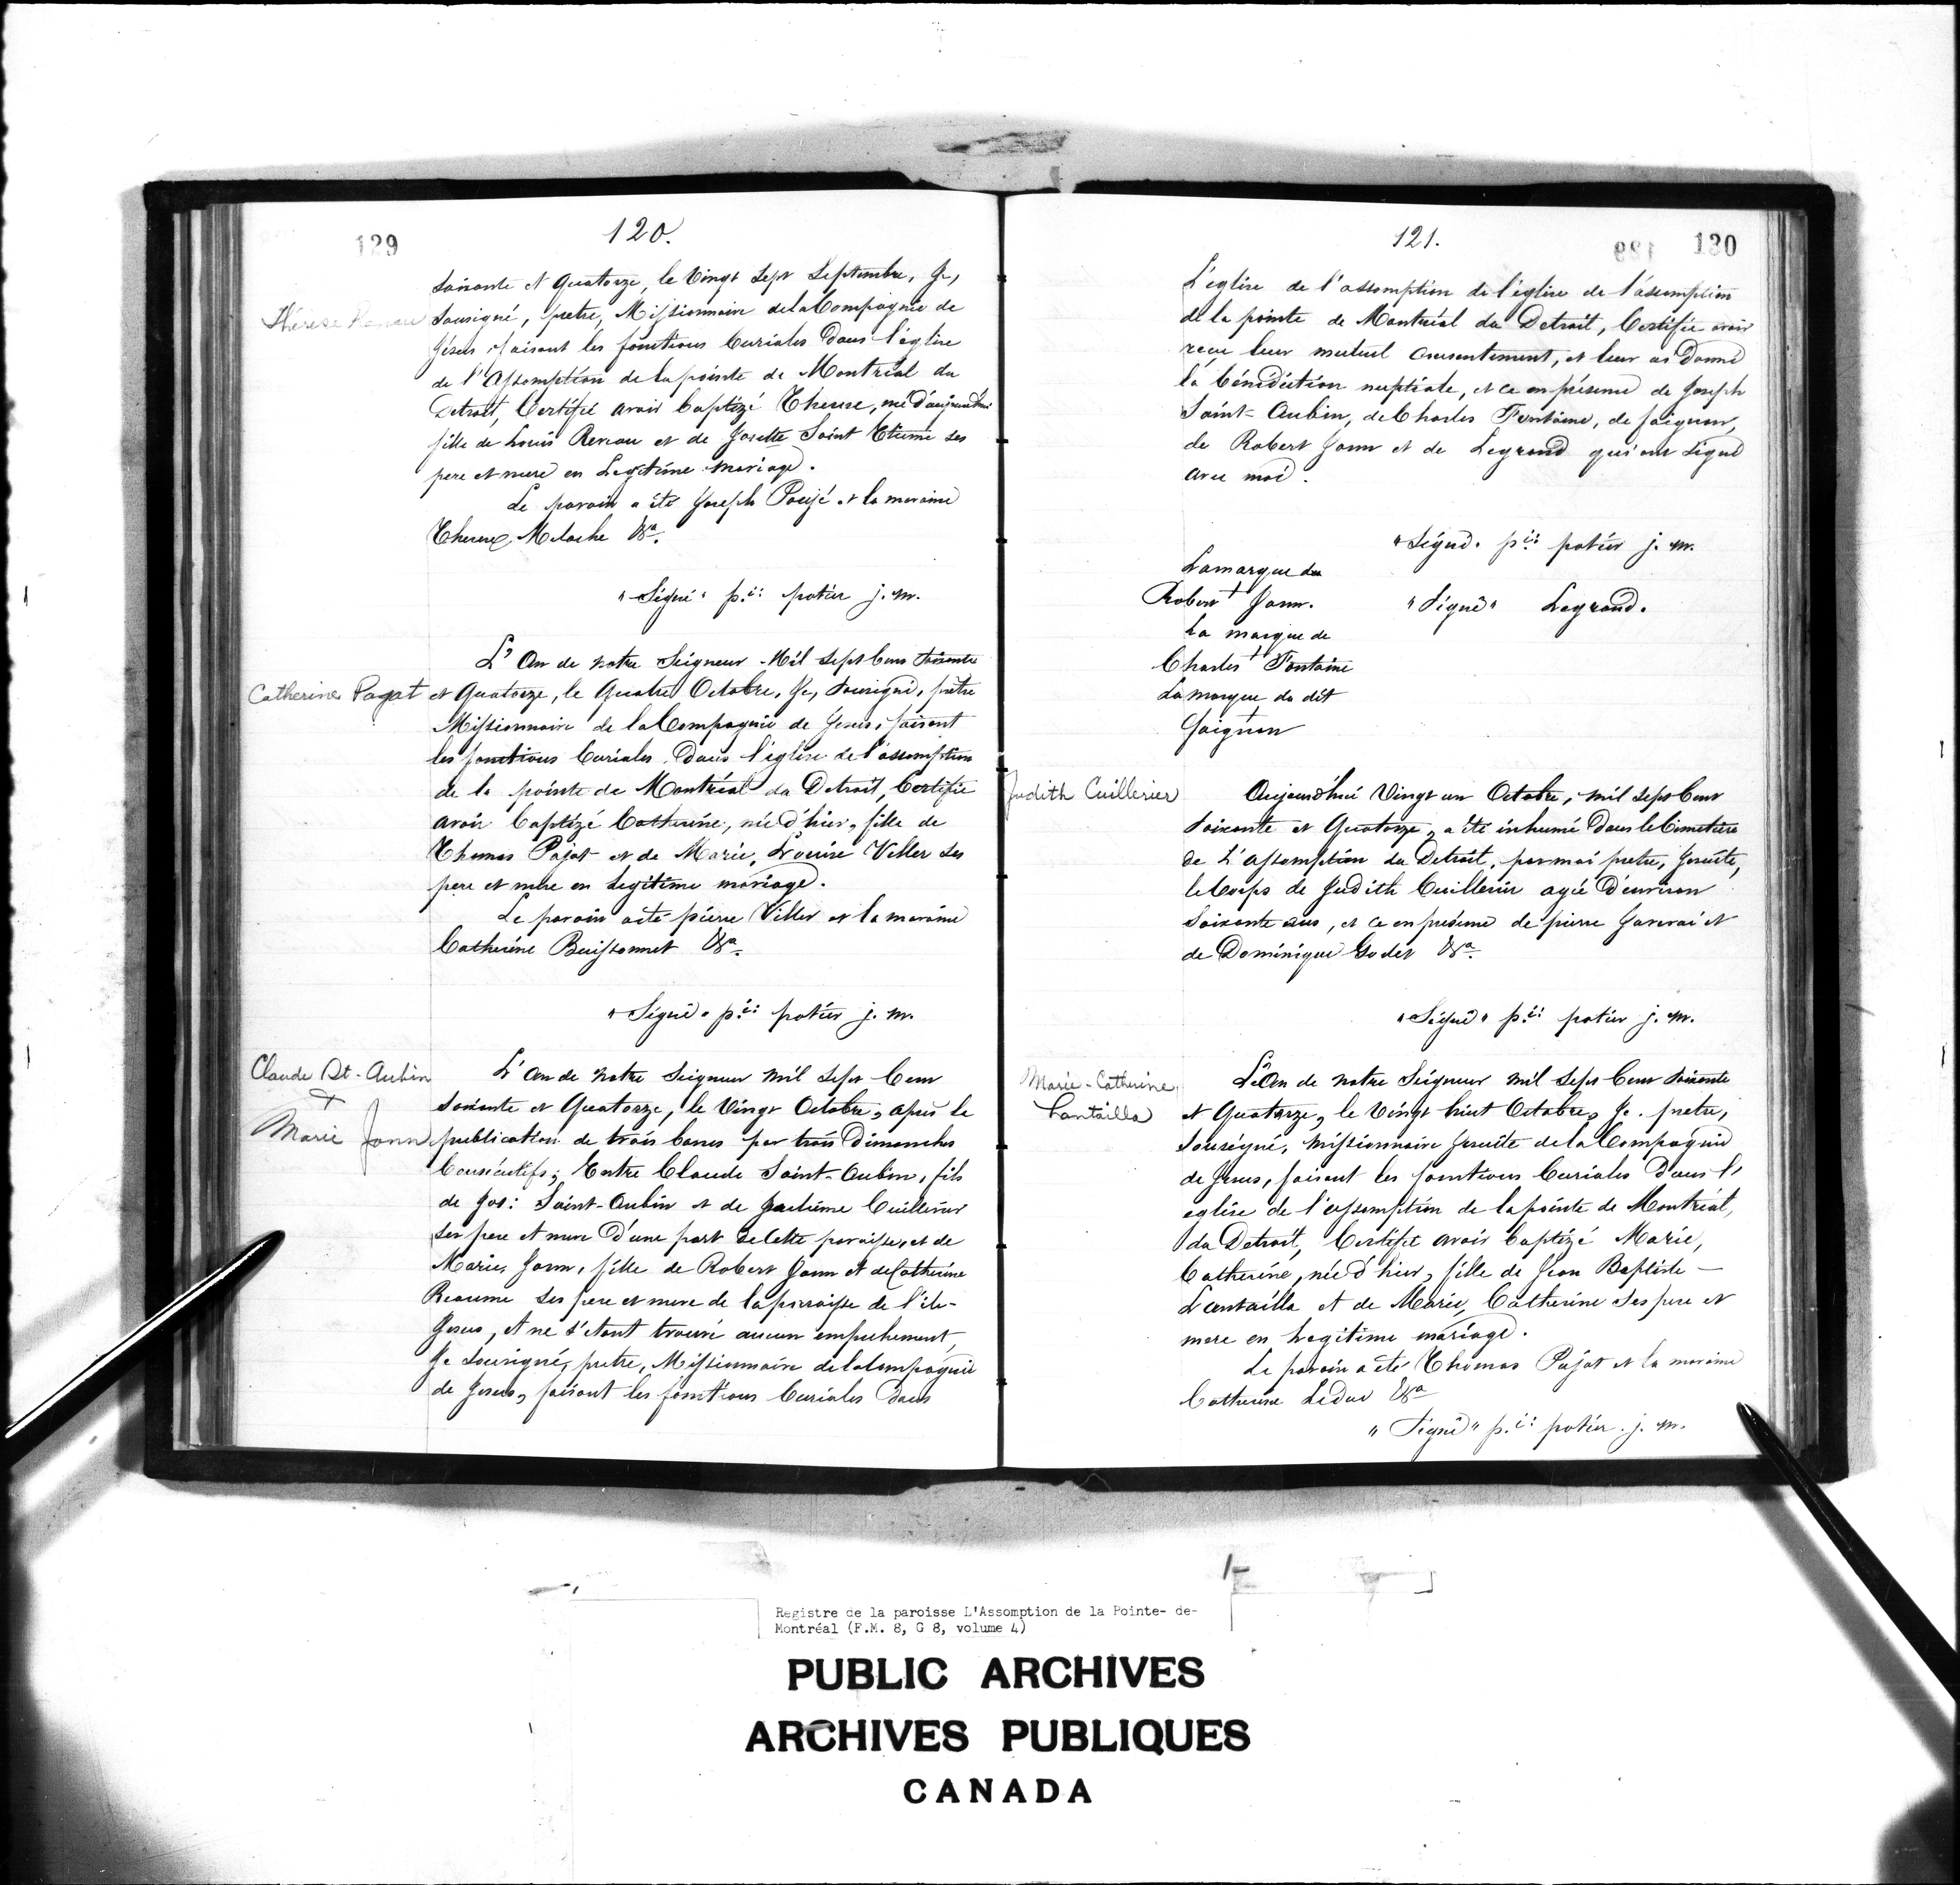 129
120.
Thérèse
Soixante et Quatorze, le Vingt Sept Septembre, Je,
Sousigné, pretre, Missionnaire de la Compagnie de
Jésus, faisant les fonctions Curiales Dans l'église
de l'Assomption de la pointe de Montréal du
Detroit, Certifie avoir baptizé Therese, née d'aujourdhui
fille de Louis Renau et de Josette Saint Etienne ses
pere et mere en Legitime mariage.
Le parain a été Joseph Pougé et la maraine
Therese Meloche &a.
"Signé" p.ii potier j. m.
L'An de notre Seigneur Mil Sept Cens Soixante
Catherine Pagat
et Quatorze, le Quatre Octobre, Je, Sousigné, prêtre
Missionnaire de la Compagnie de Jesus, faisant
les fonctions Curiales Dans l'église de l'assomption
de la pointe de Montréal du Detroit, Certifie
avoir baptizé Catherine, née d'hier, fille de
Thomas Pajot et de Marie, Louise Viller ses
pere et mere en legitime mariage.
Le parain a été pierre Viller et la maraine
Catherine Buissonnet &a.
"Signé" p.ii potier j. m.
Claude St-Aubin
+
Marie Jann
L'An de notre Seigneur mil Sept Cens
Soixante et Quatorze, le Vingt Octobre, apres la
publication de trois bancs par trois Dimanches
Consécutifs; Entre Claude Saint-Aubin, fils
de Jos: Saint-Aubin et de Cuillerier
ses pere et mere d'une part de cette paroisse, et de
Marie, Jann, fille de Robert Jann et de Catherine
Reaume ses pere et mere de la paroisse de l'ile-
Jesus, et ne s'etant trouvé aucun empechement,
Je Sousigné, pretre, Missionnaire de la Compagnie
de Jesus, faisant les fonctions Curiales dans
121.
129 130
L'église de l'assomption de l'église de l'assomption
de la pointe de Montréal du Detroit, Certifie avoir
reçu leur mutuel consentement, et leur ai Donné
la bénédiction nuptiale, et ce en présence de Joseph
Saint-Aubin, de Charles Fontaine, de faignan,
de Robert Jann et de Legrand qui ont signé
avec moi.
"Signé" p.ii potier j. m.
La marque du
Robert + Jann.
"Signé" Legrand.
La marque de
Charles + Fontaine
La marque du dit
+
faignan
Judith Cuillerier
Aujourdhui Vingt un Octobre, mil Sept Cens
Soixante et Quatorze, a été inhumé Dans le Cimetiere
de L'assomption du Detroit, par moi pretre, Jesuite,
le Corps de Judith Cuillerier agée D'environ
Soixante ans, et ce en présence de pierre et
de Dominique Godet &a.
"Signé" p.ii potier j. m.
Marie-Catherine
Lantailla
L'An de notre Seigneur mil Sept Cens Soixante
et Quatorze, le Vingt huit Octobre, Je. pretre,
Sousigné, Missionnaire Jesuite de la Compagnie
de Jesus, faisant les fonctions Curiales Dans l'
église de l'assomption de la pointe de Montréal,
du Detroit, Certifie avoir baptizé Marie,
Catherine, née d'hier, fille de Jean Baptiste -
Lantailla et de Marie, Catherine ses pere et
mere en Legitime mariage.
Le parain a été Thomas Pajot et la maraine
Catherine Leduc &a
"Signé" p.ii potier. j. m.
Registre de la paroisse L'Assomption de la Pointe- de-
Montréal (F.M. 8, G 8, volume 4)
PUBLIC ARCHIVES
ARCHIVES PUBLIQUES
CANADA